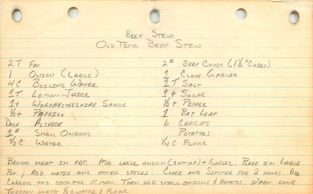 Beef Stew
Old Time Beef Stew
2 T Fat
1 Onion (Large)
4 C Boiling Water
1 T Lemon Juice
1 t Worcestershire Sauce
½ t Paprika
Dash Allspice
1# Small Onions
½ C Water
2# Beef Chuck (1½" Cubes)
1 Clove Garlic
1 T Salt
1 t Sugar
½ t Pepper
1 Bay Leaf
6 Carrots
Potatoes
¼ C Flour
Brown meat in fat. Add large onion (cut up) & garlic. Place in Large
Pot; Add water and other spices. Cover and Simmer for 2 hours. Add
Carrots and cook for 15 min. Then add small onions & potatoes. When done
Thicken with ½ C water & flour